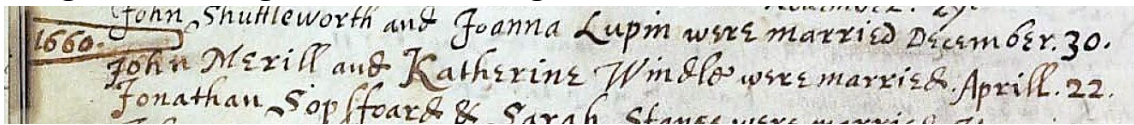 November. 29.
John Shuttleworth and Joanna Lupin were married December. 30.
1660.
John Merill and Katherine Windle were married. Aprill. 22.
Jonathan Sopssoard & Sarah were married